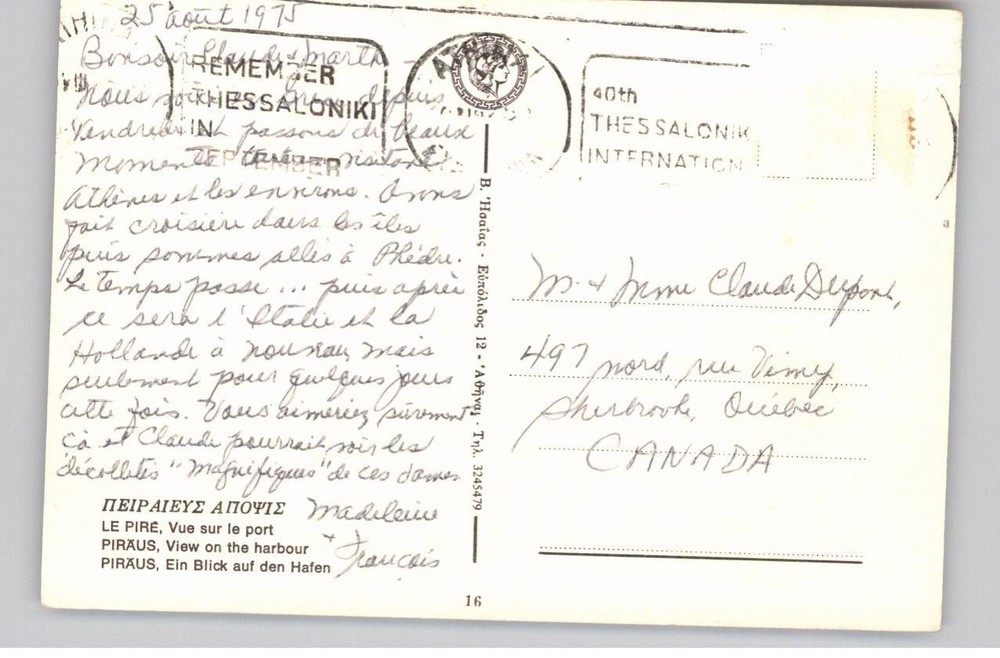 25 août 1975
Bonsoir Claude & Marthe
Nous depuis
Vendredi et passons de beaux
moments visitant
Athènes et les environs. Avons
fait croisière dans les îles
puis sommes allés à Phèdre.
Le temps passe ... puis après
ce sera l'Italie et la
Hollande à nouveau, mais
seulement pour quelques jours
cette fois. Vous aimeriez sûrement
ça et Claude pourrait voir les
décolletés "magnifiques" de ces dames
Madeleine
& François
REMEMBER
THESSALONIKI
IN
SEPTEMBER
40th
THESSALONIK
INTERNATION
M. & Mme Claude Dupont,
497 nord, rue Vimy,
Sherbrooke, Québec
CANADA
Β. Ἡσαΐας - Εὐπόλιδος 12 - Ἀθῆναι - Τηλ. 3245479
ΠΕΙΡΑΙΕΥΣ ΑΠΟΨΙΣ
LE PIRÉ, Vue sur le port
PIRÄUS, View on the harbour
PIRÄUS, Ein Blick auf den Hafen
16